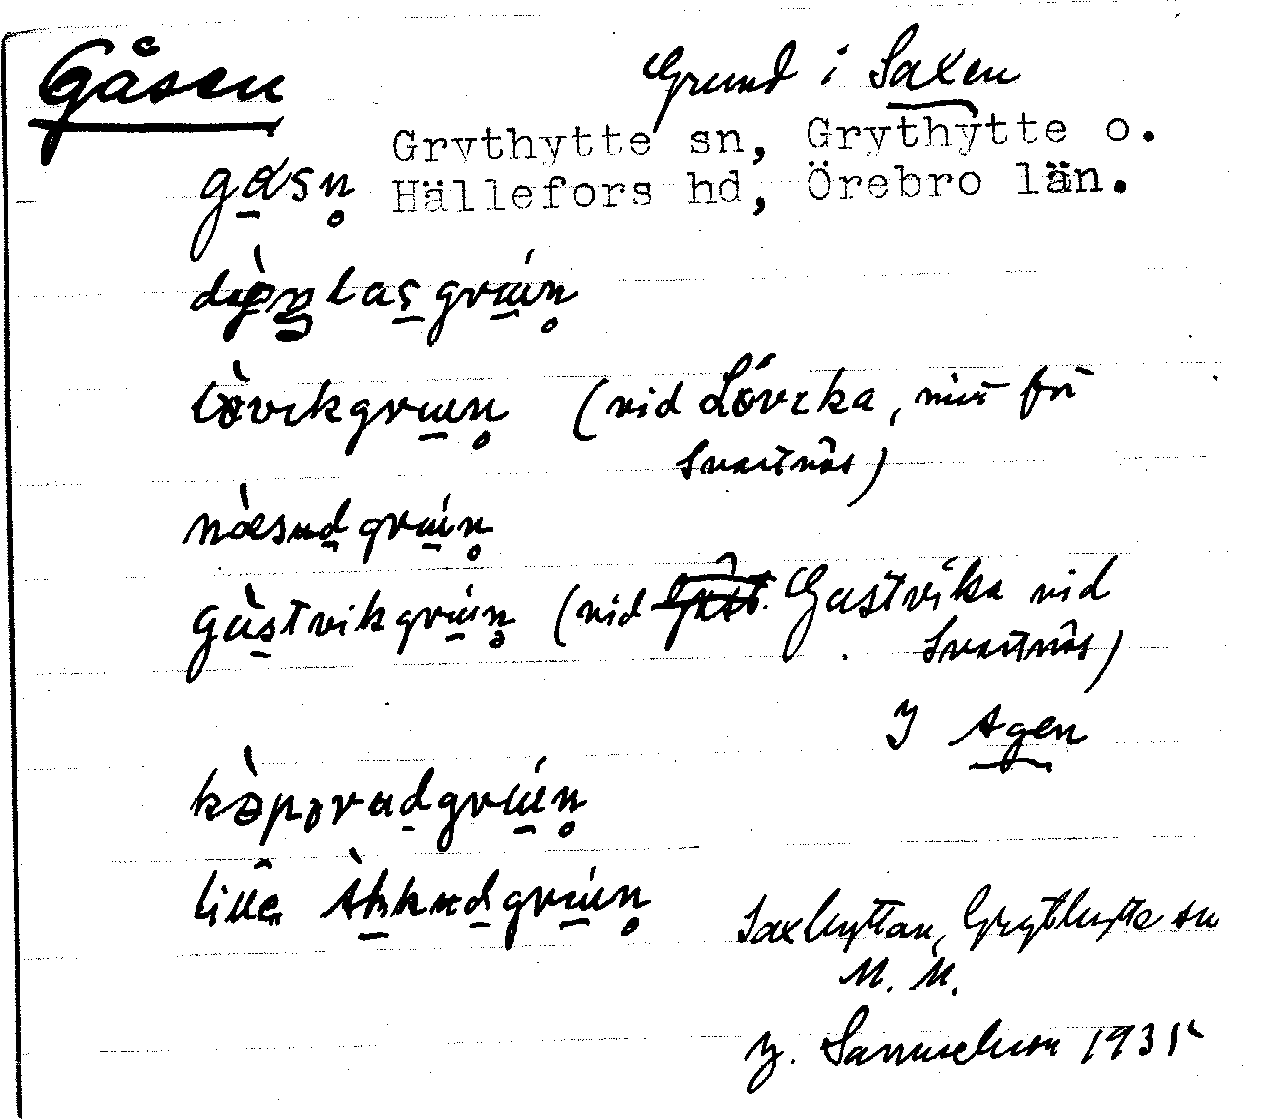 Gåsen
Grund i Saxen
Grythytte sn, Grythytte o.
Hällefors hd, Örebro län.
gɑsn̥
lòvikgrun̥ (vid Lövika, mitt för
Svartnäs)
nàsudgrún̥
gàstvikgrún̥ (vid Gastvika vid
Svartnäs)
I Agen
kòpərudgrún̥
lillə
Saxhyttan, Grythytte sn
M. M.
Y. Samuelsson 1935